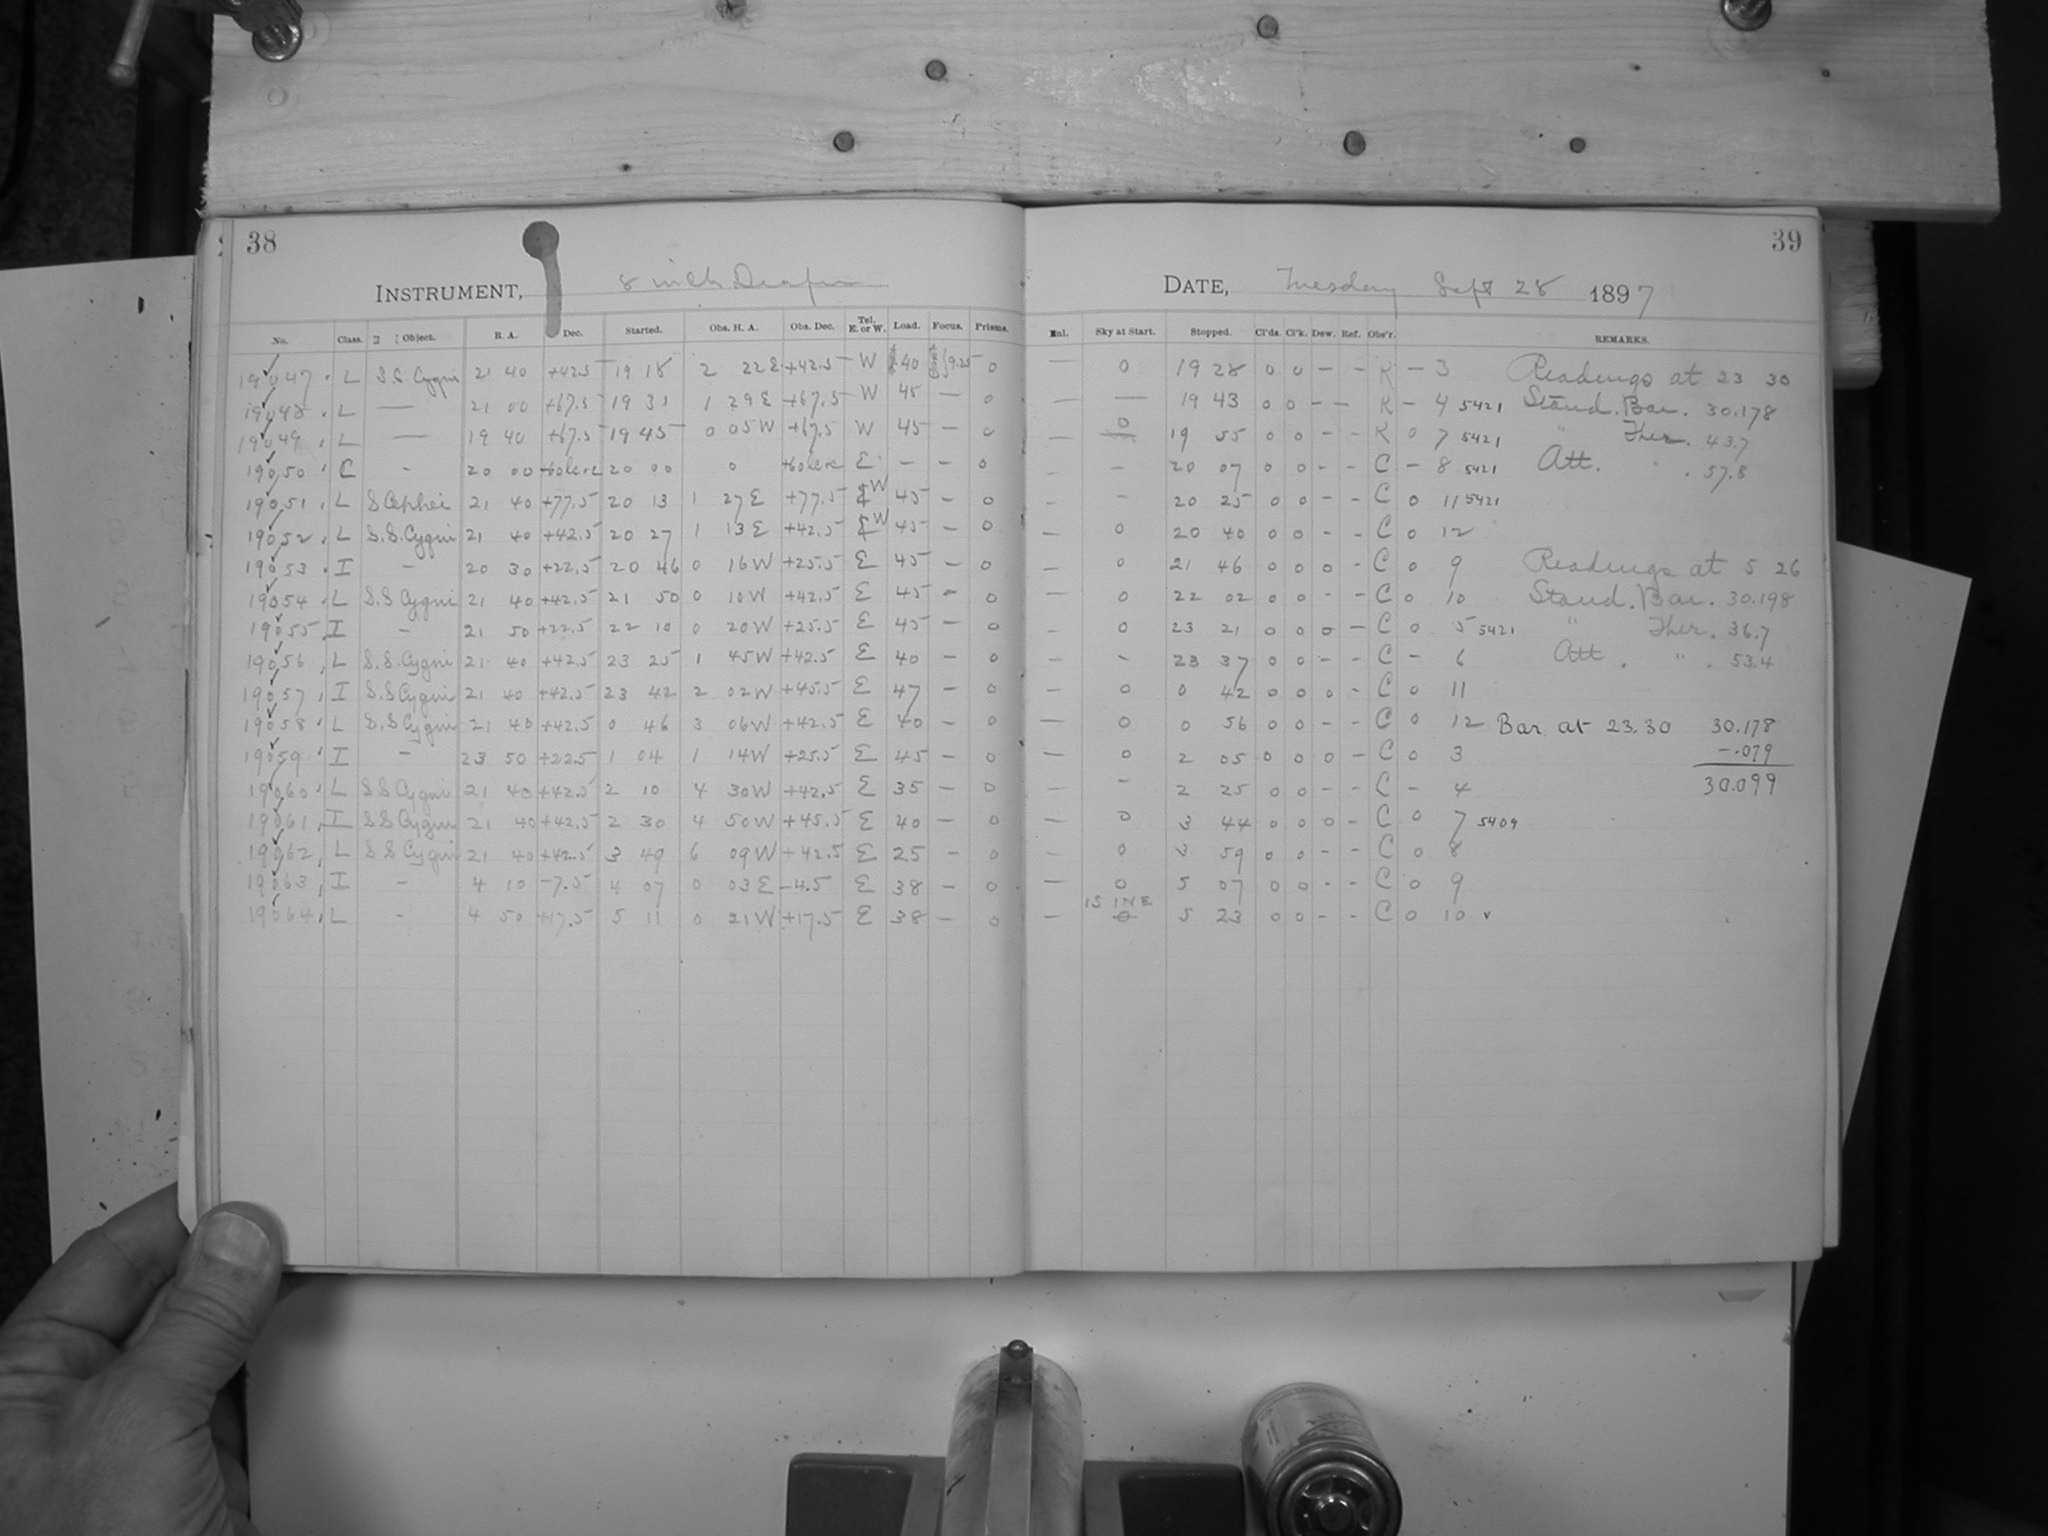 38
INSTRUMENT, 8 inch Draper
No. Class. Object. R. A. Dec. Started. Obs. H. A. Obs. Dec. Tel. E. or W. Load. Focus. Prisms.
19047 L S.S. Cygni 21 40 +42.5 19 18 2 22 E +42.5 W 40 9.25 0
19048 L — 21 00 +67.5 19 31 1 29 E +67.5 W 45 — 0
19049 L — 19 40 +67.5 19 45 0 05 W +67.5 W 45 — 0
19050 C - 20 00 20 00 0 E - - 0
19051 L S Cephei 21 40 +77.5 20 13 1 27 E +77.5 E W 45 - 0
19052 L S.S. Cygni 21 40 +42.5 20 27 1 13 E +42.5 E W 45 - 0
19053 I - 20 30 +22.5 20 46 0 16 W +25.5 E 45 - 0
19054 L S.S Cygni 21 40 +42.5 21 50 0 10 W +42.5 E 45 - 0
19055 I - 21 50 +22.5 22 10 0 20 W +25.5 E 45 - 0
19056 L S.S. Cygni 21 40 +42.5 23 25 1 45 W +42.5 E 40 - 0
19057 I S.S Cygni 21 40 +42.5 23 42 2 02 W +45.5 E 47 - 0
19058 L S.S Cygni 21 40 +42.5 0 46 3 06 W +42.5 E 40 - 0
19059 I - 23 50 +22.5 1 04 1 14 W +25.5 E 45 - 0
19060 L S S Cygni 21 40 +42.5 2 10 4 30 W +42.5 E 35 - 0
19061 I S S Cygni 21 40 +42.5 2 30 4 50 W +45.5 E 40 - 0
19062 L S S Cygni 21 40 +42.5 3 49 6 09 W +42.5 E 25 - 0
19063 I - 4 10 -7.5 4 07 0 03 E -4.5 E 38 - 0
19064 L - 4 50 +17.5 5 11 0 21 W +17.5 E 38 - 0
39
DATE, Tuesday Sept 28 1897
Enl. Sky at Start. Stopped. Cl'ds. Cl'k. Dew. Ref. Obs'r. REMARKS.
— 0 19 28 0 0 - - K - 3 Readings at 23 30
— — 19 43 0 0 - - K - 4 5421 Stand. Bar. 30.178
— 0 19 55 0 0 - - K 0 7 5421 " Ther. 43.7
- - 20 07 0 0 - - C - 8 5421 Att. " . 57.8
- - 20 25 0 0 - - C 0 11 5421
- 0 20 40 0 0 - - C 0 12
- 0 21 46 0 0 0 - C 0 9 Readings at 5 26
- 0 22 02 0 0 - - C 0 10 Stand. Bar. 30.198
- 0 23 21 0 0 0 - C 0 5 5421 " Ther. 36.7
- - 23 37 0 0 - - C - 6 Att. " . 53.4
- 0 0 42 0 0 0 - C 0 11
- 0 0 56 0 0 - - C 0 12 Bar. at 23.30 30.178
- 0 2 05 0 0 0 - C 0 3 -.079
- - 2 25 0 0 - - C - 4 30.099
- 0 3 44 0 0 0 - C 0 7 5409
- 0 3 59 0 0 - - C 0 8
- 0 5 07 0 0 - - C 0 9
IS INE
- 0 5 23 0 0 - - C 0 10 v